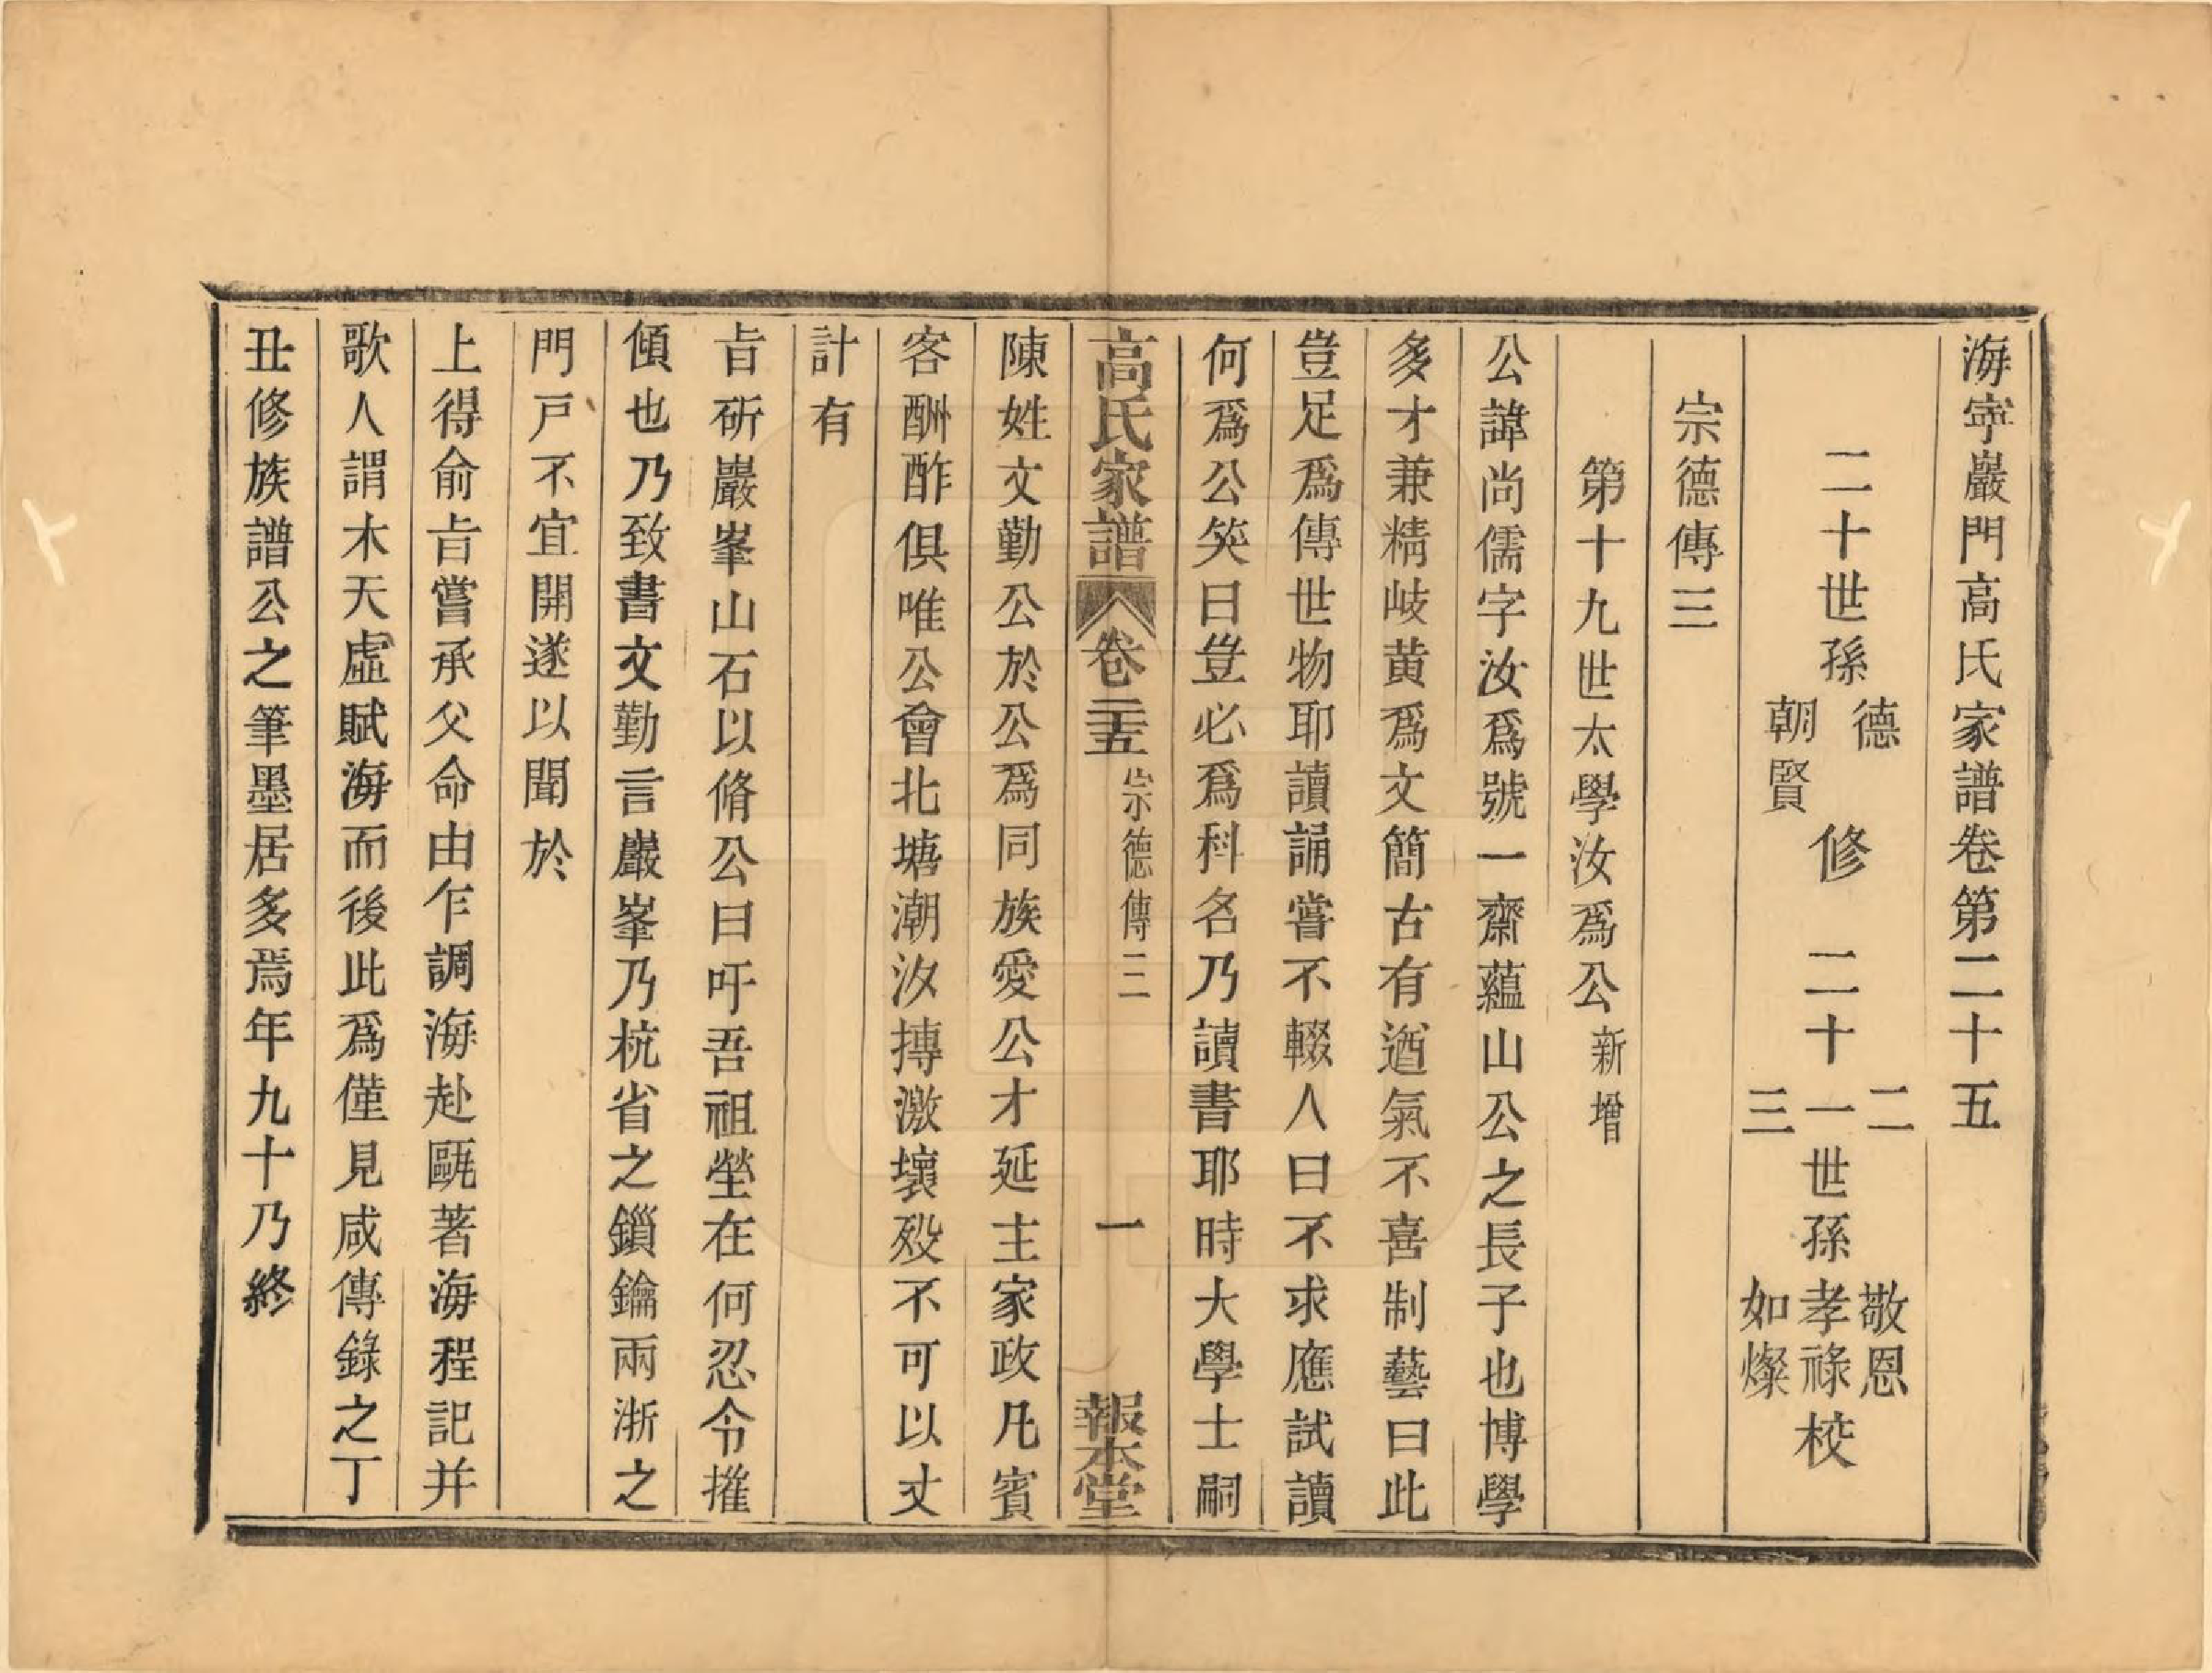 海寧巖門高氏家譜卷第二十五
二十世孫德朝賢修 二十一二三世孫敬恩孝祿如燦校
宗德傳三
第十九世太學汝爲公新增
公諱尚儒字汝爲號一齋蘊山公之長子也博學
多才兼精岐黃爲文簡古有遒氣不喜制藝曰此
豈足爲傳世物耶讀誦嘗不輟人曰不求應試讀
何爲公笑曰豈必爲科名乃讀書耶時大學士嗣
高氏家譜 卷二十五 宗德傳三 一 報本堂
陳姓文勤公於公爲同族愛公才延主家政凡賓
客酬酢俱唯公會北塘潮汐摶激壞殁不可以丈
計有
旨斫巖峯山石以脩公曰吁吾祖塋在何忍令摧
傾也乃致書文勤言巖峯乃杭省之鎖鑰兩浙之
門戸不宜開遂以聞於
上得俞旨嘗承父命由乍調海赴甌著海程記并
歌人謂木天虛賦海而後此爲僅見咸傳錄之丁
丑修族譜公之筆墨居多焉年九十乃終